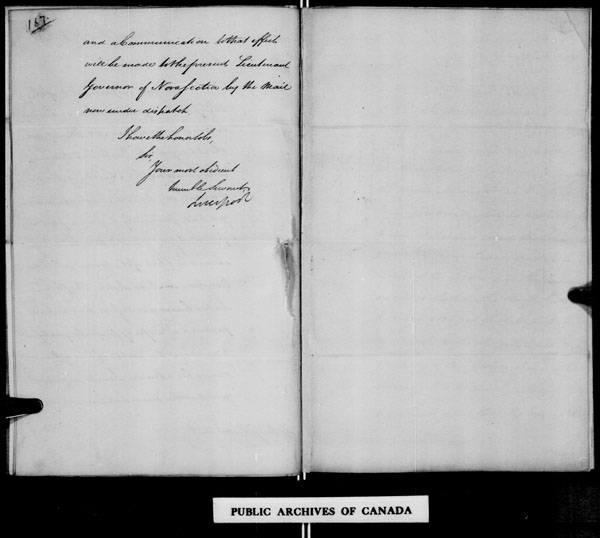 167.
and a Communication to that effect
will be made to the present Lieutenant
Governor of Nova Scotia by the Mail
now under dispatch
I have the honor to be,
Sir,
Your most obedient
humble Servant,
Liverpool
PUBLIC ARCHIVES OF CANADA